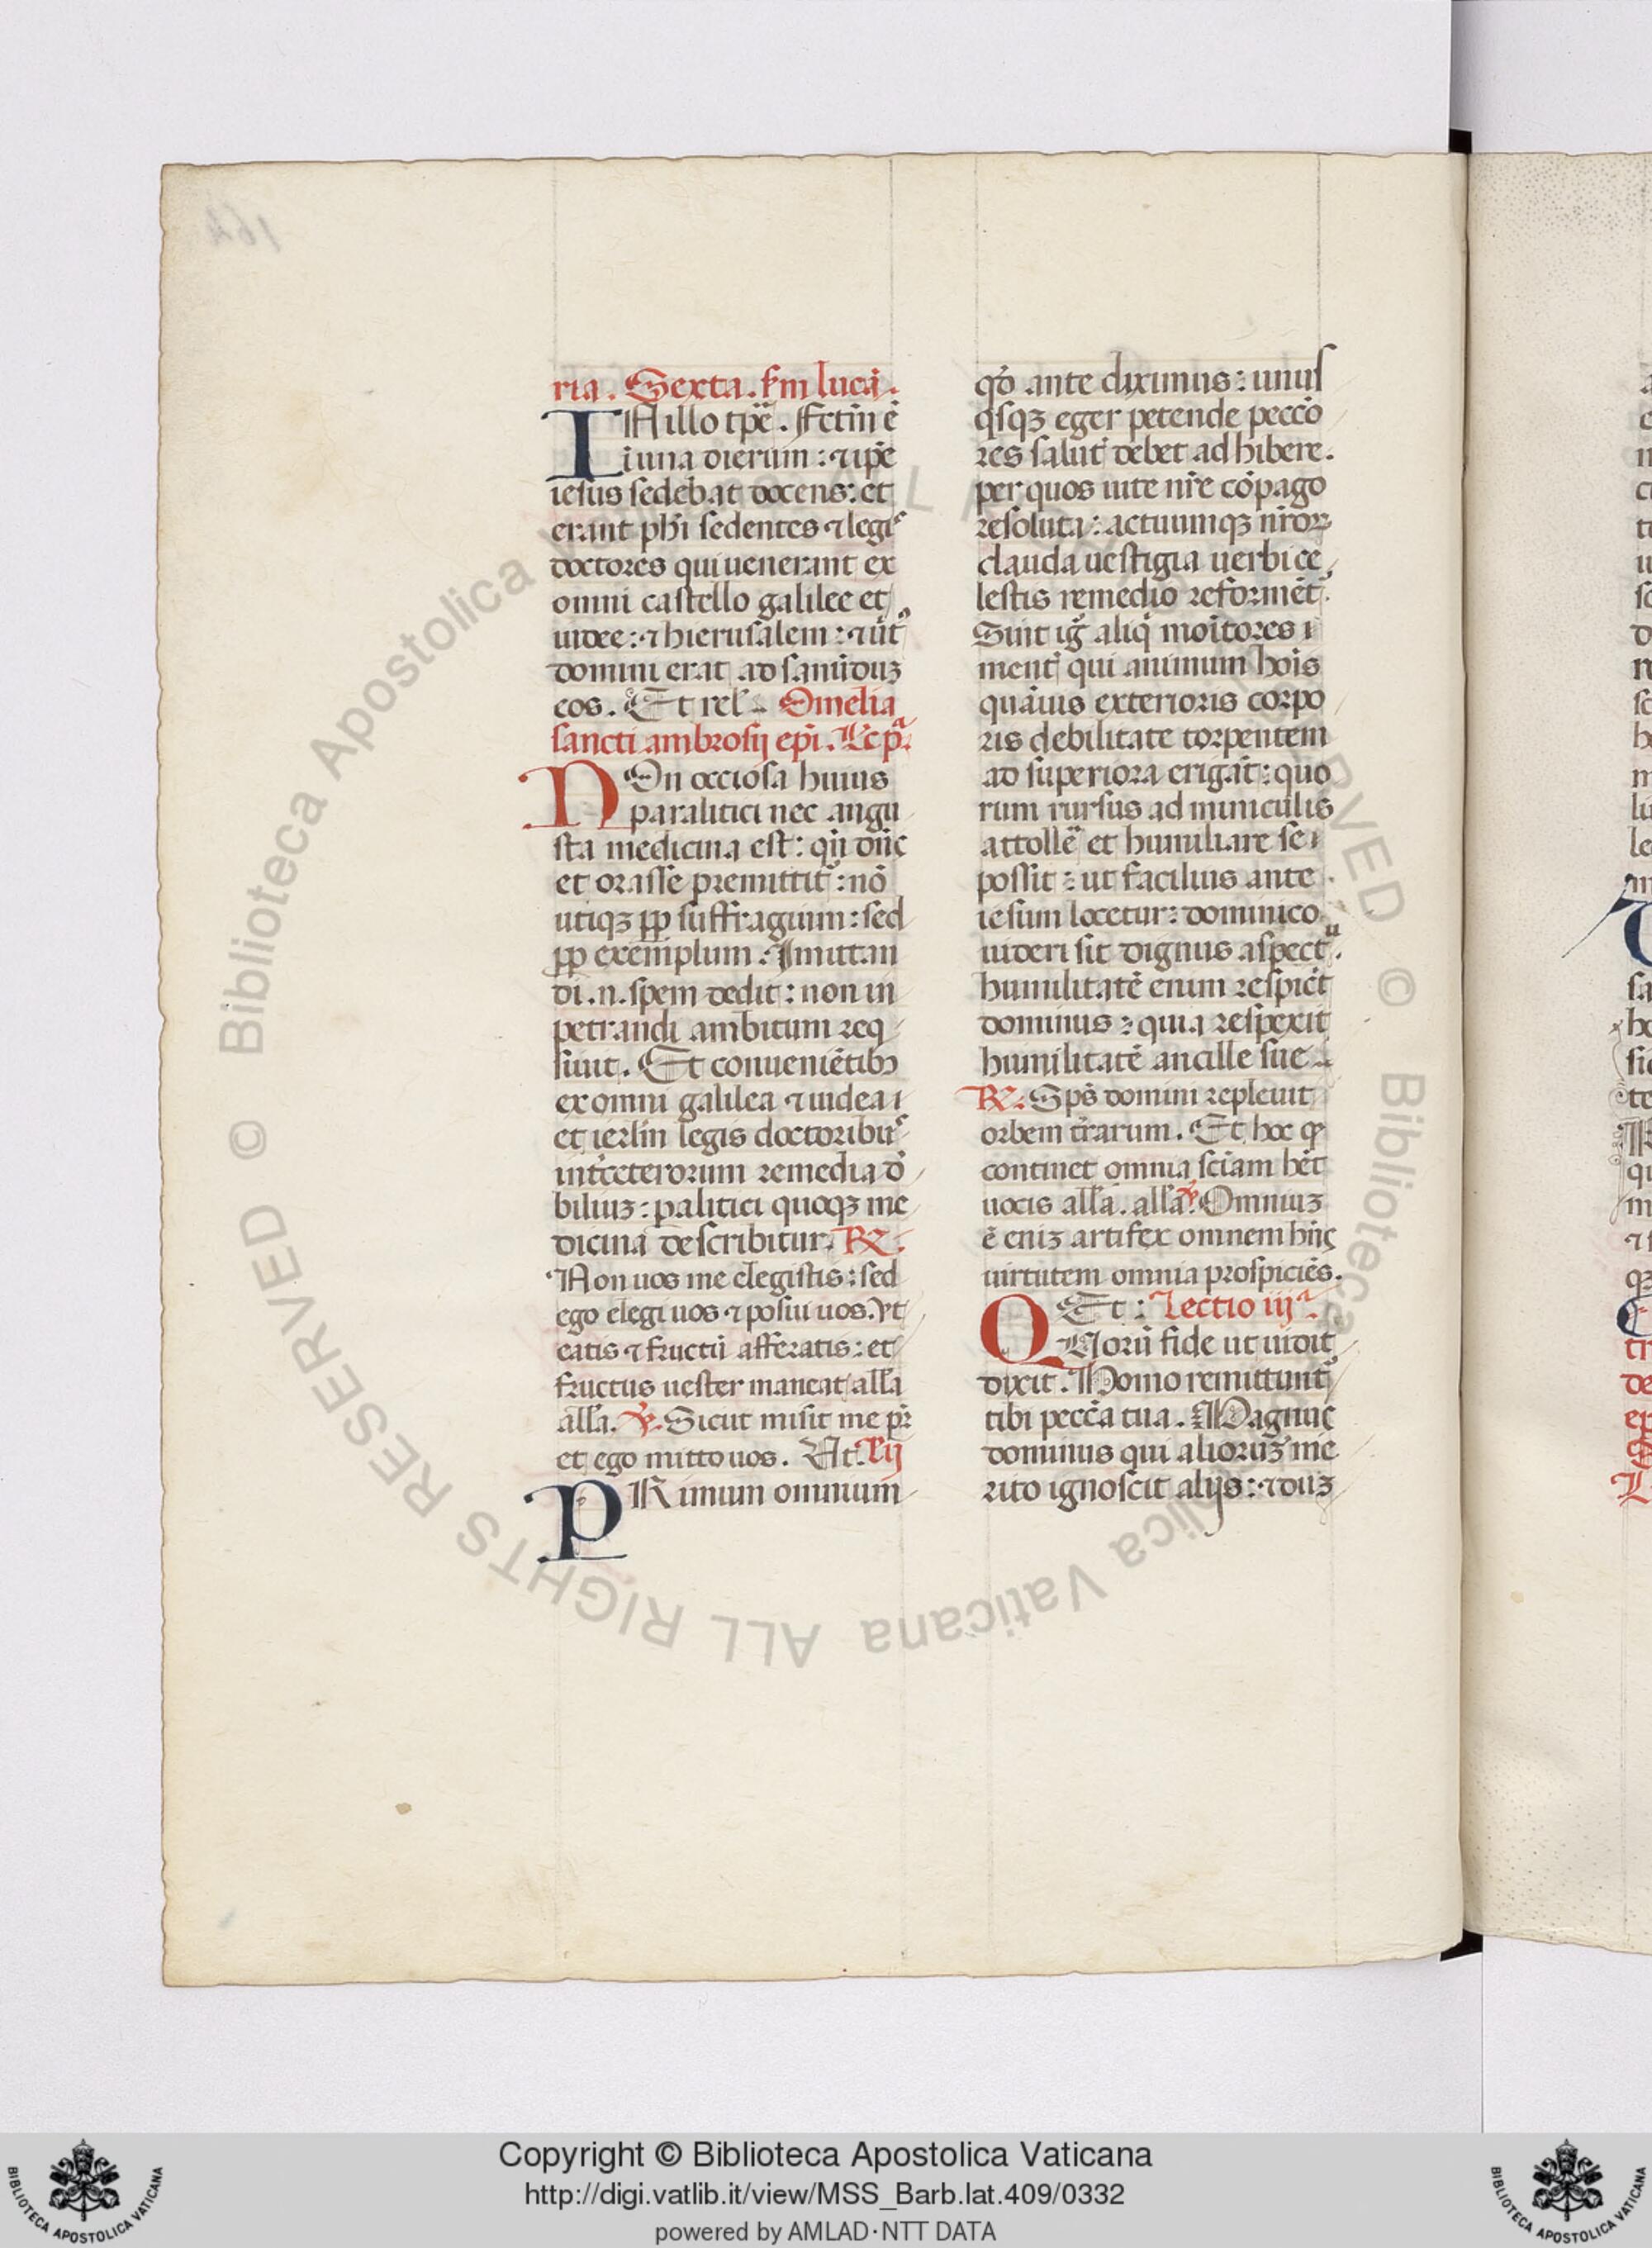 ria. Sexta. s̄m lucā.
IN illo tp̄e. Fctm̄ ē
i una dierum: ⁊ ip̄e
iesus sedebat docens: et
erant ph̄i sedentes ⁊ legis
doctores qui uenerant ex
omni castello galilee et
iudee: ⁊ hierusalem: ⁊ u̇t᷒
domini erat ad sanāduꝫ
eos. Et rel̄. Omelia
sancti ambrosij ep̄i. Lc̄ pᵃ.
NOn occiosa huius
paralitici nec angu
sta medicina est: qn̄ dn̄s
et orasse premittit᷒: nō
utiqꝫ ꝓp suffragium: sed
ꝓp exemplum: Imittan
di .n. spem dedit: non in
petrandi ambitum req
siuit. Et conueniētibꝫ
ex omni galilea ⁊ iudea
et ierl̄m legis doctoribus
int̄ ceterorum remedia d̄
biliuꝫ: ꝑalitici quoqꝫ me
dicina describitur. ℟.
Non uos me elegistis: sed
ego elegi uos ⁊ posui uos. Vt
eatis ⁊ fructū afferatis: et
fructus uester maneat all̄a
all̄a. ℣. Sicut misit me pr̄
et ego mitto uos. Vt. L̄ ij
PRimum omnium
qd̄ ante diximus: unus
qsqꝫ eger petende peccō
res salut᷒ debet ad hibere.
per quos uite nr̄e cōpago
resoluta: actuumqꝫ nr̄oꝝ
clauda uestigia uerbi ce
lestis remedio reformēt᷒.
Sint ig̊ aliq moītores
ment᷒ qui animum hoīs
quāuis exterioris corpo
ris debilitate torpentem
ad superiora erigāt: quo
rum rursus ad miniculis
attolle᷑ et humiliare se
possit: ut facilius ante
iesum locetur: dominico
uideri sit dignus aspectu.
humilitatē enim respic̄t
dominus: quia respexit
humilitatē ancille sue
℟. Sp̄s domini repleuit
orbem t̄rarum. Et hoc ꝙ
continet omnia sc̄iam h̄et
uocis all̄a. all̄a. ℣. Omniuꝫ
ē eniꝫ artifex omnem hn̄s
uirtutem omnia prospiciēs.
Et: Lectio iijᵃ.
QUorū fide ut uidit
dixit. Homo remittunt᷒
tibi pecc̄a tua. Magnus
dominus qui alioruꝫ me
rito ignoscit alijs: ⁊ duꝫ
© Biblioteca Apostolica Vaticana ALL RIGHTS RESERVED
© Biblioteca Apostolica Vaticana ALL RIGHTS RESERVED
Copyright © Biblioteca Apostolica Vaticana
http://digi.vatlib.it/view/MSS_Barb.lat.409/0332
powered by AMLAD·NTT DATA
BIBLIOTECA APOSTOLICA VATICANA
BIBLIOTECA APOSTOLICA VATICANA